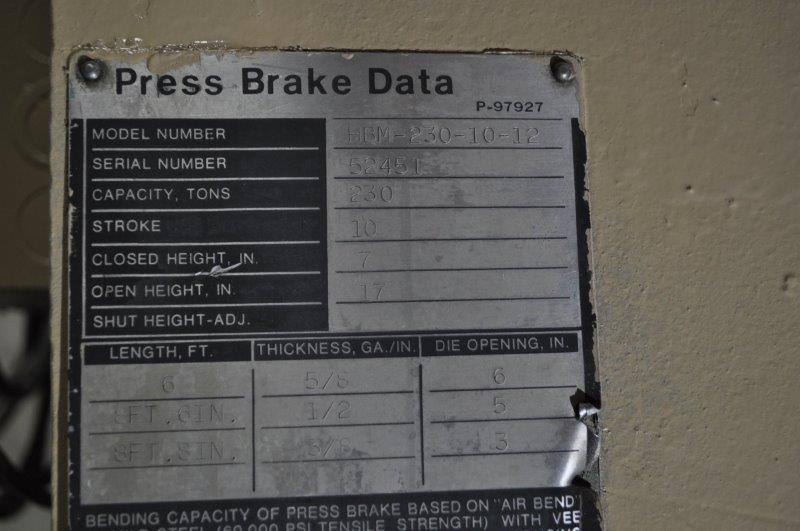 Press Brake Data
P-97927
MODEL NUMBER HBM-230-10-12
SERIAL NUMBER 52451
CAPACITY, TONS 230
STROKE 10
CLOSED HEIGHT, IN. 7
OPEN HEIGHT, IN. 17
SHUT HEIGHT-ADJ.
LENGTH, FT. THICKNESS, GA./IN. DIE OPENING, IN.
6 5/8 6
1/2 5
8FT.8IN. 3/8 3
BENDING CAPACITY OF PRESS BRAKE BASED ON "AIR BEND"
STEEL (60,000 PSI TENSILE STRENGTH) WITH VEE